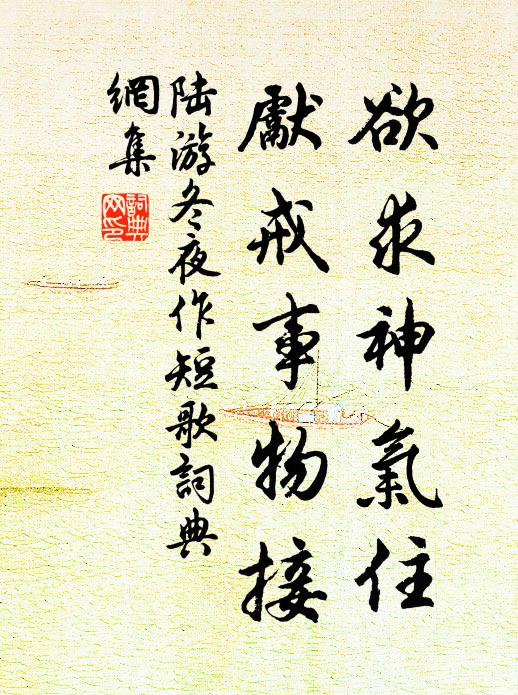 欲求神氣住
獻戒事物接
陆游冬夜作短歌詞典
網集
詞典
网印